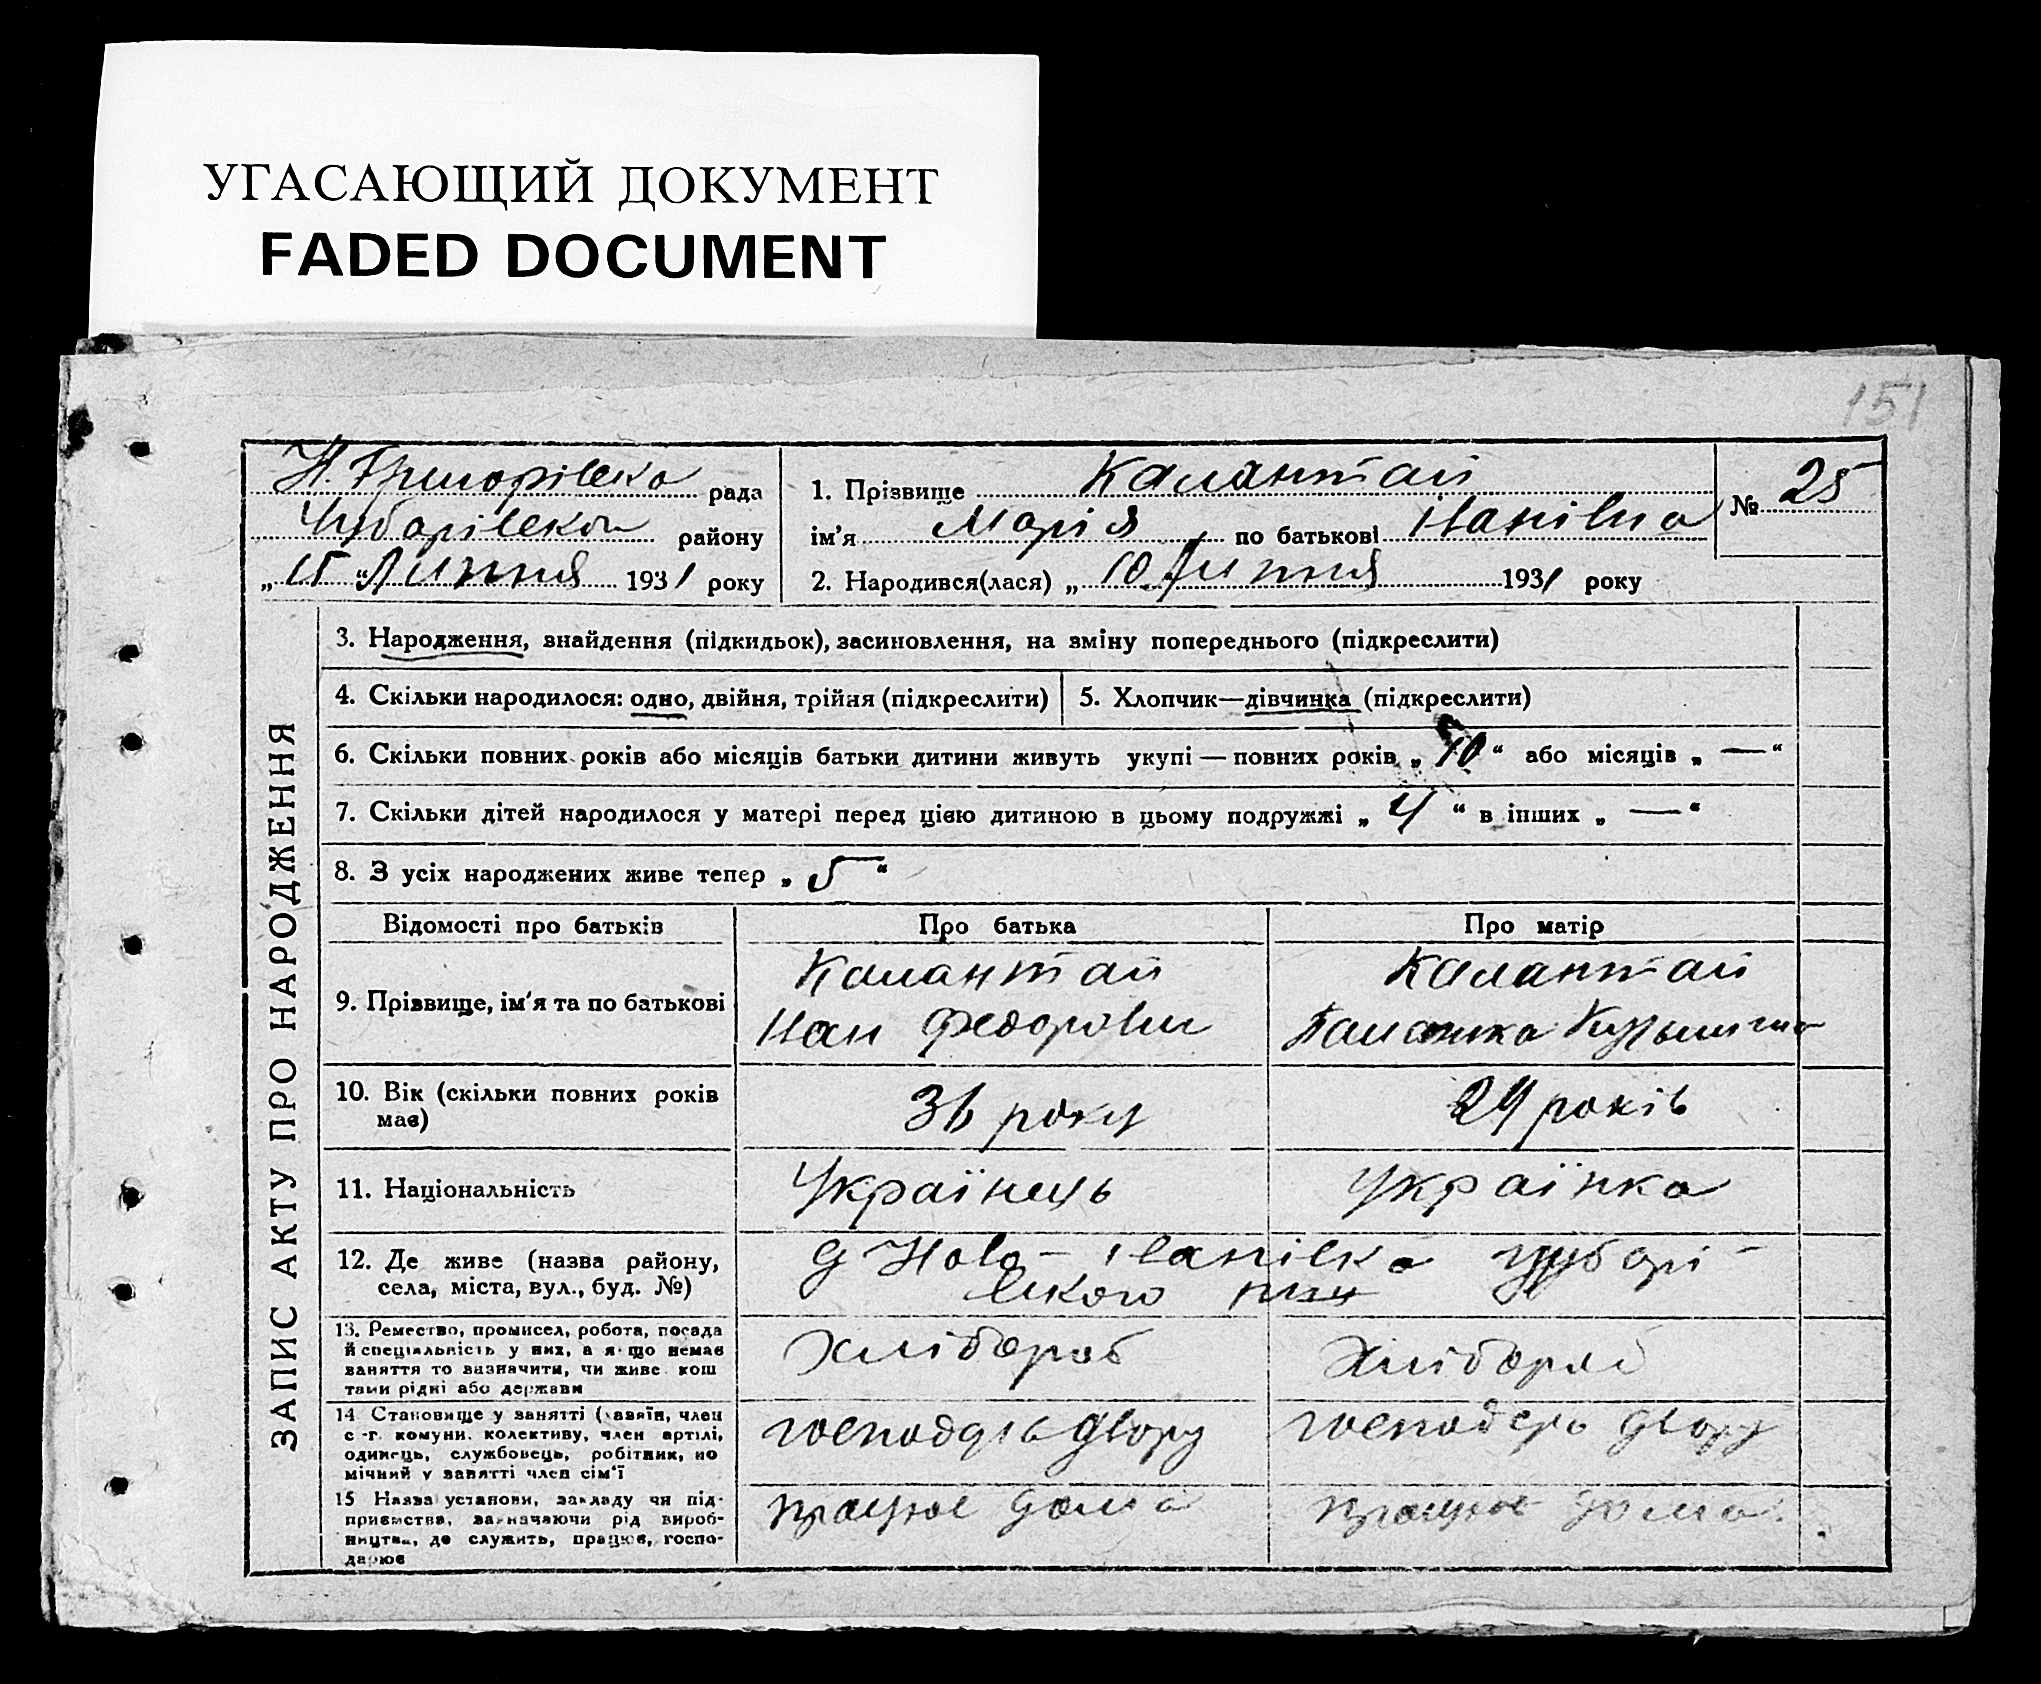 УГАСАЮЩИЙ ДОКУМЕНТ
FADED DOCUMENT
151
Н. Григорівська рада
Чубарівского району
„ 15 “ Липня 1931 року
1. Прізвище Калантай
ім'я Марія по батькові Іванівна
2. Народився(лася) „ 10 Липня 1931 року
№ 25
ЗАПИС АКТУ ПРО НАРОДЖЕННЯ
3. Народження, знайдення (підкидьок), засиновлення, на зміну попереднього (підкреслити)
4. Скільки народилося: одно, двійня, трійня (підкреслити)
5. Хлопчик—дівчинка (підкреслити)
6. Скільки повних років або місяців батьки дитини живуть укупі — повних років „ 10 “ або місяців „ — “
7. Скільки дітей народилося у матері перед цією дитиною в цьому подружжі „ 4 “ в інших „ — “
8. З усіх народжених живе тепер „ 5 “
Відомості про батьків
Про батька
Про матір
9. Прізвище, ім'я та по батькові
Калантай
Іван Федорович
Калантай
Кузьминична
10. Вік (скільки повних років
має)
36 року
29 років
11. Національність
Українець
Українка
12. Де живе (назва району,
села, міста, вул., буд. №)
Ново-Іванівка Чубарі-
вского
13. Ремество, промисел, робота, посада
й спеціяльність у них, а якщо немає
заняття то зазначити, чи живе кош
тами рідні або держави
Хлібороб
Хлібороб
14 Становище у занятті (хазяїн, член
с.-г. комуни, колективу, член артілі,
одинець, службовець, робітник, по
мічний у занятті член сім'ї
господарь двору
господарь двору
15 Назва установи, закладу чи під-
приємства, зазначаючи рід вироб-
ництва, де служить, працює, госпо-
дарює
працює дома
працює дома